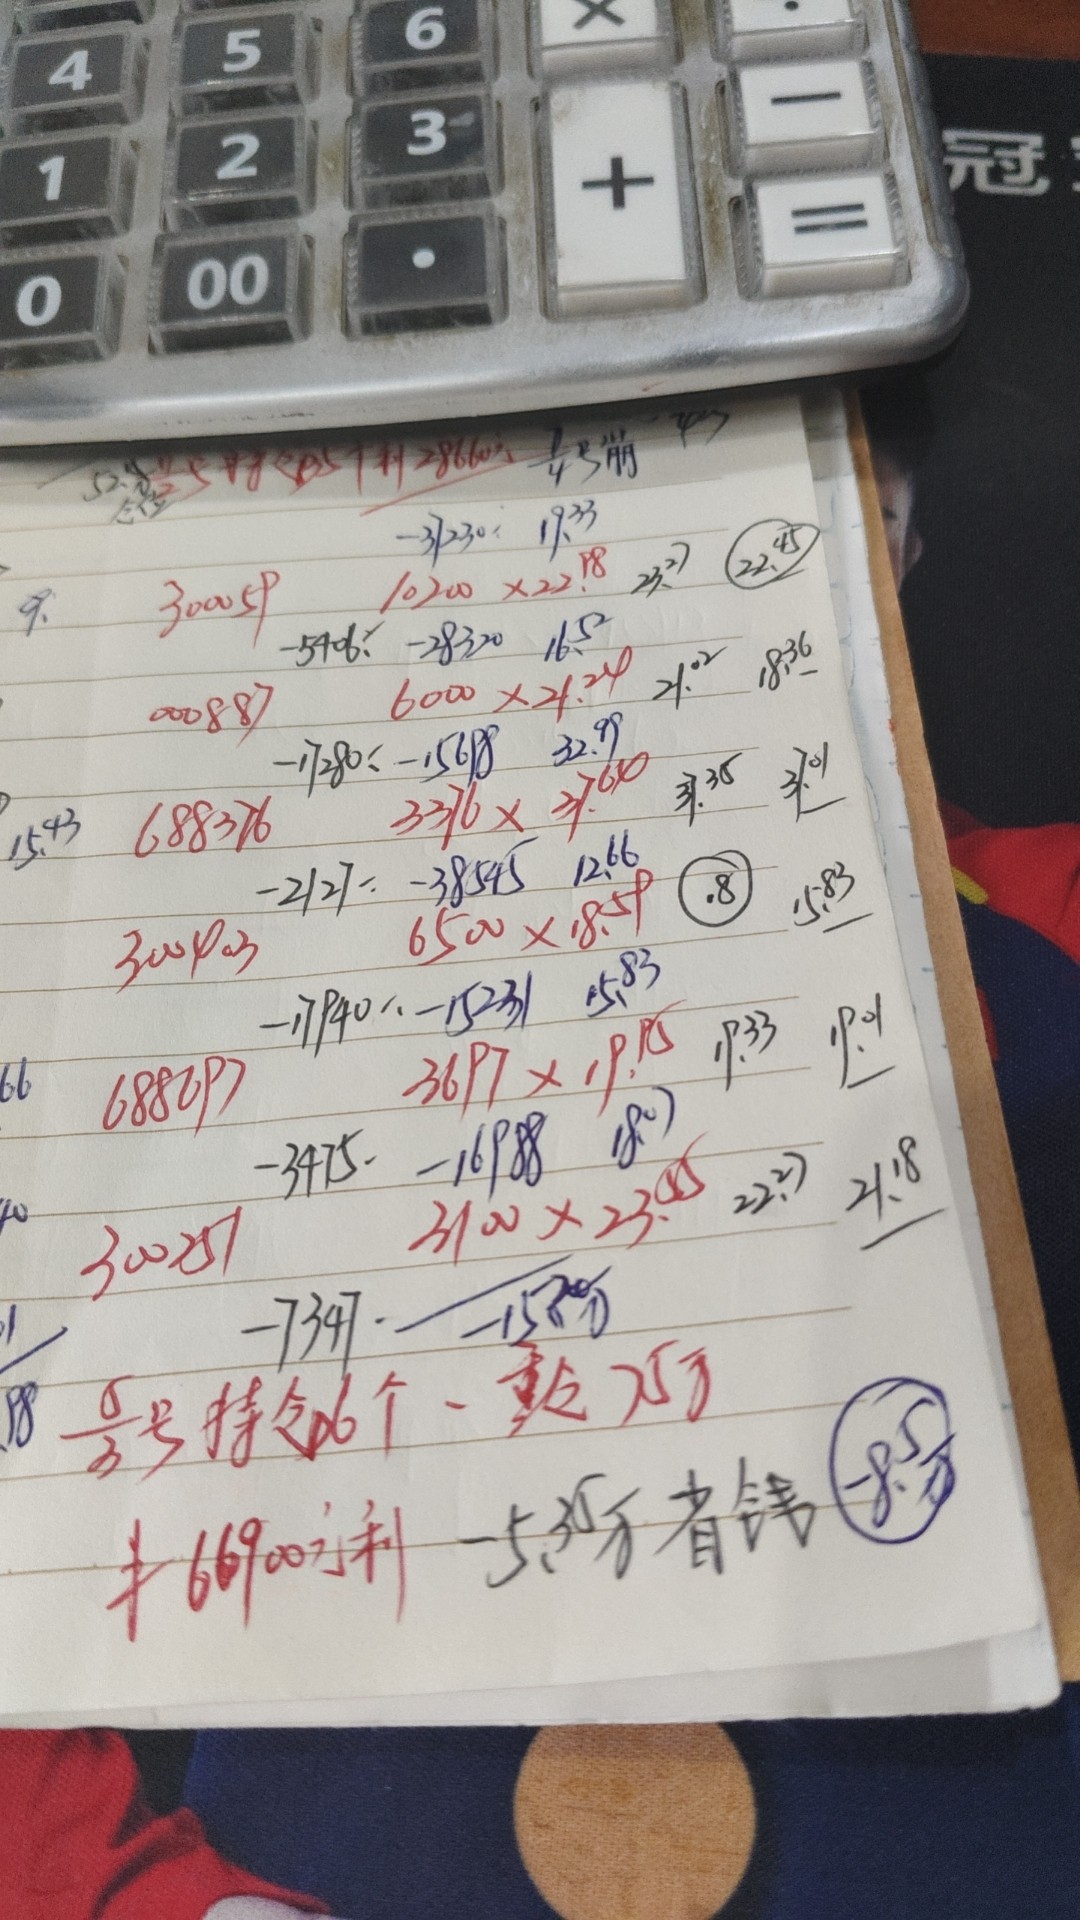 4 5 6 ×
1 2 3 + −
0 00 · =
冠
号持仓5个利28660元 1/4号崩
-37230 19.33
300059 10200 × 22.98 23.27 22.45
-5406 -28320 16.52
000887 6000 × 21.24 21.02 18.36
-17280 -15698 32.99
15.43 688376 3376 × 37.640 37.35 37.01
-2127 -38545 12.66
300403 6500 × 18.59 .8 15.83
-17940 -15231 15.83
66 688697 3697 × 19.95 19.33 19.01
-3475 -16988 18.07
40 300251 3100 × 23.45 22.27 21.18
-7347
.98 5/3号持仓06个、重仓75万 -8.5万
66900元利 -5.35万 省钱